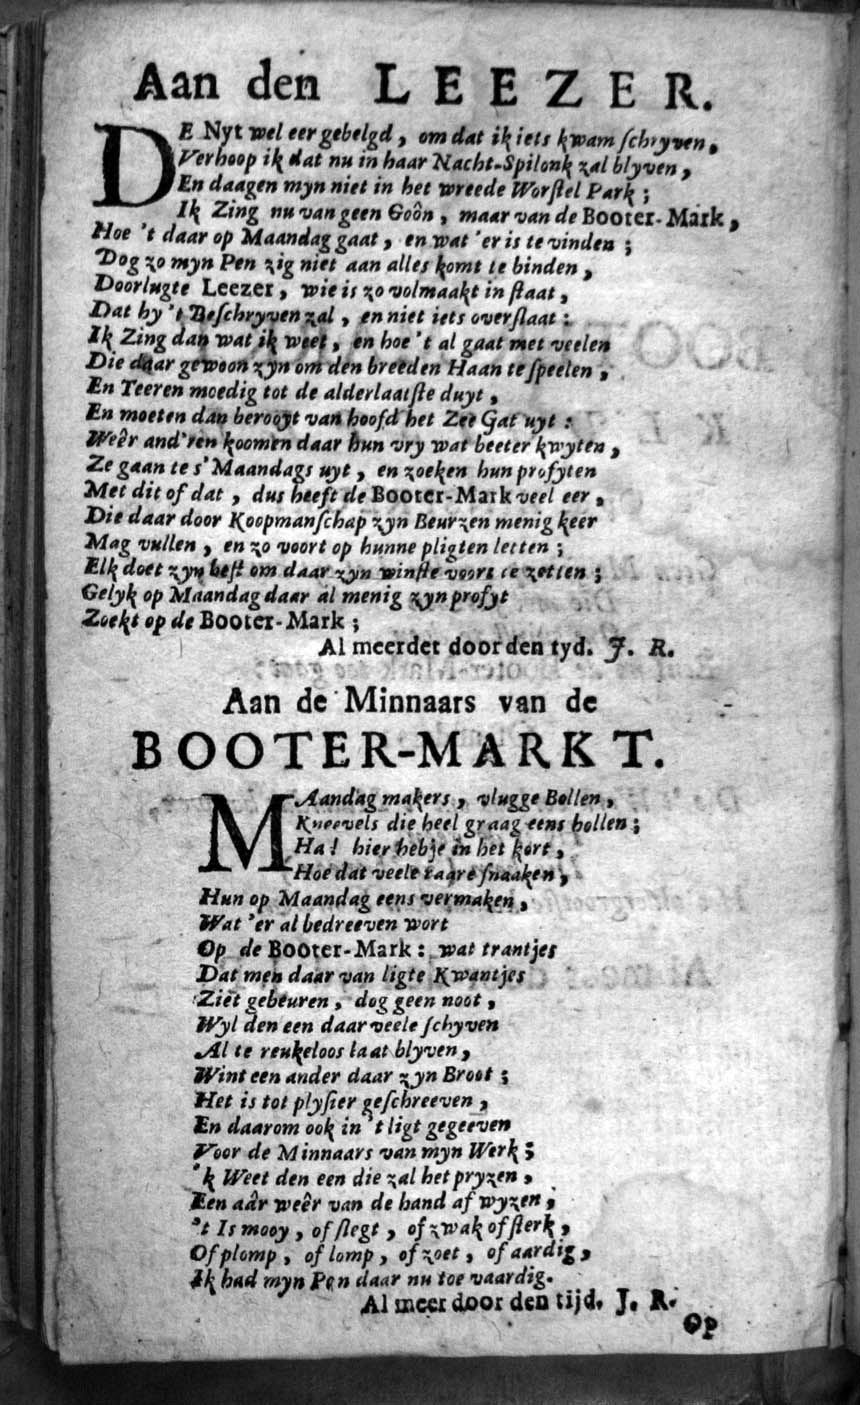 Aan den LEEZER.
DE Nyt wel eer gebelgd, om dat ik iets kwam schryven,
Verhoop ik dat nu in haar Nacht-Spilonk zal blyven,
En daagen myn niet in het wreede Worstel Park;
Ik Zing nu van geen Goôn, maar van de Booter-Mark,
Hoe 't daar op Maandag gaat, en wat 'er is te vinden;
Dog zo myn Pen zig niet aan alles komt te binden,
Doorlugte Leezer, wie is zo volmaakt in staat,
Dat hy 't Beschryven zal, en niet iets overslaat:
Ik Zing dan wat ik weet, en hoe 't al gaat met veelen
Die daar gewoon zyn om den breeden Haan te speelen,
En Teeren moedig tot de alderlaatste duyt,
En moeten dan berooyt van hoofd het Zee Gat uyt:
Weêr and'ren koomen daar hun vry wat beeter kwyten,
Ze gaan te s' Maandags uyt, en zoeken hun profyten
Met dit of dat, dus heeft de Booter-Mark veel eer,
Die daar door Koopmanschap zyn Beurzen menig keer
Mag vullen, en zo voort op hunne pligten letten;
Elk doet zyn best om daar zyn winste voort te zetten;
Gelyk op Maandag daar al menig zyn profyt
Zoekt op de Booter-Mark;
Al meerder door den tyd. J. R.
Aan de Minnaars van de
BOOTER-MARKT.
MAandag makers, vlugge Bollen,
Kneevels die heel graag eens hollen;
Ha! hier heb je in het kort,
Hoe dat veele raare snaaken,
Hun op Maandag eens vermaken,
Wat 'er al bedreeven wort
Op de Booter-Mark: wat trantjes
Dat men daar van ligte Kwantjes
Ziet gebeuren, dog geen noot,
Wyl den een daar veele schyven
Al te reukeloos laat blyven,
Wint een ander daar zyn Broot;
Het is tot plysier geschreeven,
En daarom ook in 't ligt gegeeven
Voor de Minnaars van myn Werk;
'k Weet den een die zal het pryzen,
Een aâr weêr van de hand af wyzen,
't Is mooy, of slegt, of zwak of sterk,
Of plomp, of lomp, of zoet, of aardig,
Ik had myn Pen daar nu toe vaardig.
Al meer door den tijd. J. R.
Op